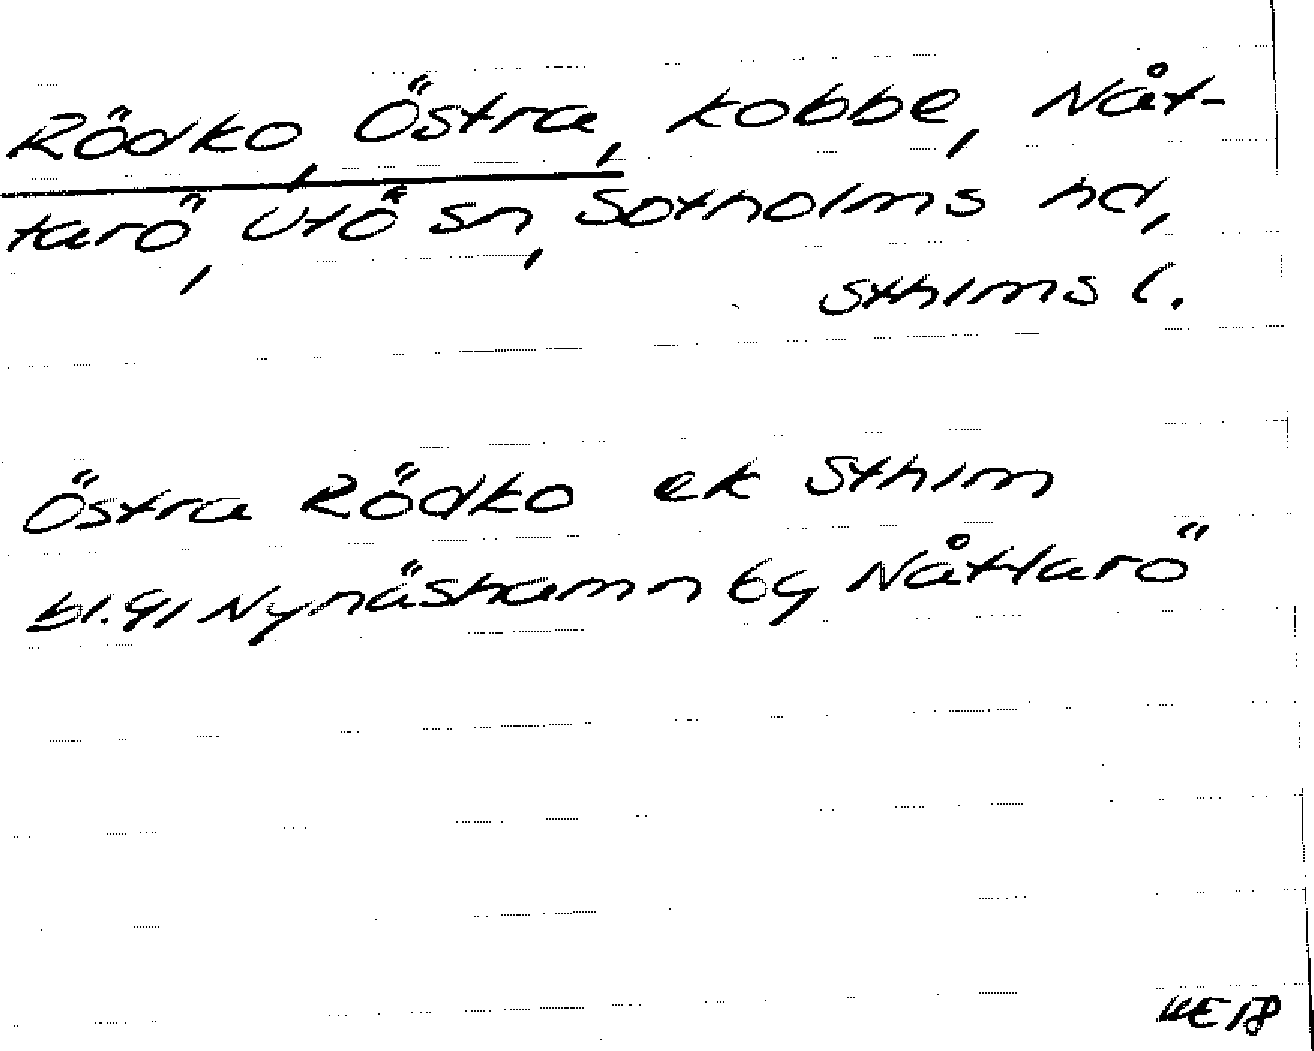 Rödko, Östra, kobbe, Nåt-
tarö, Utö sn, Sotholms hd,
Sthlms l.
Östra Rödko ek Sthlm
bl. 91 Nynäshamn 6g Nåttarö